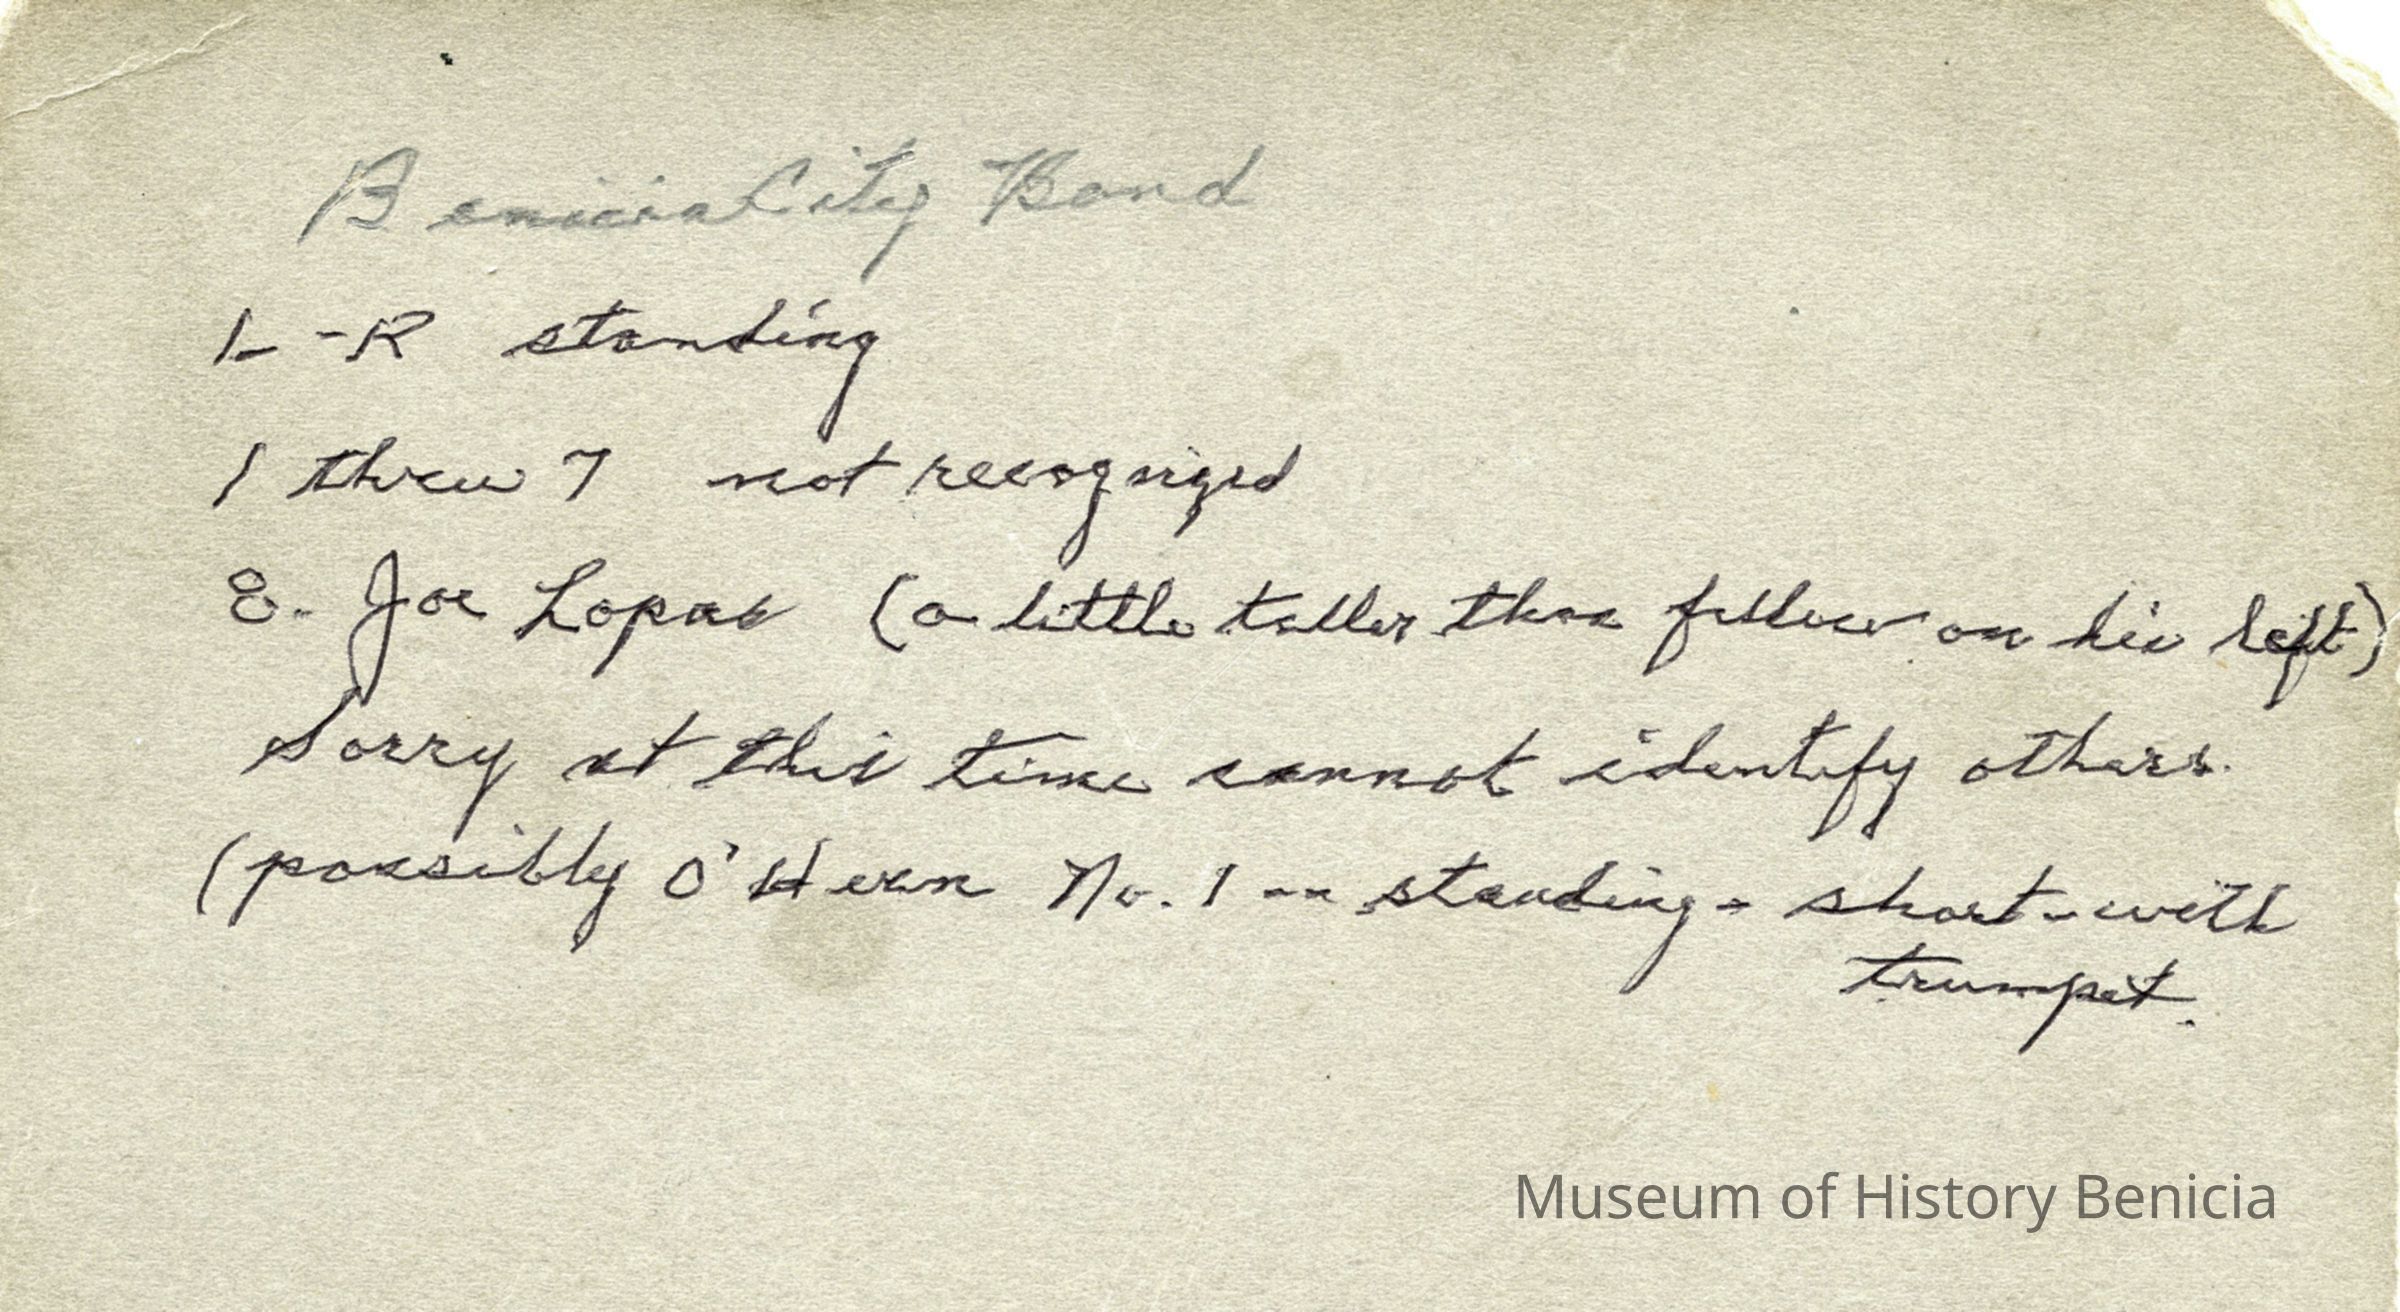 Benicia City Band
L-R standing
1 threw 7 not recognized
8. Joe Lopas (a little taller than fellow on his left)
Sorry at this time cannot identify others.
(possibly O'Hern No. 1 -- standing - short - with
trumpet.
Museum of History Benicia